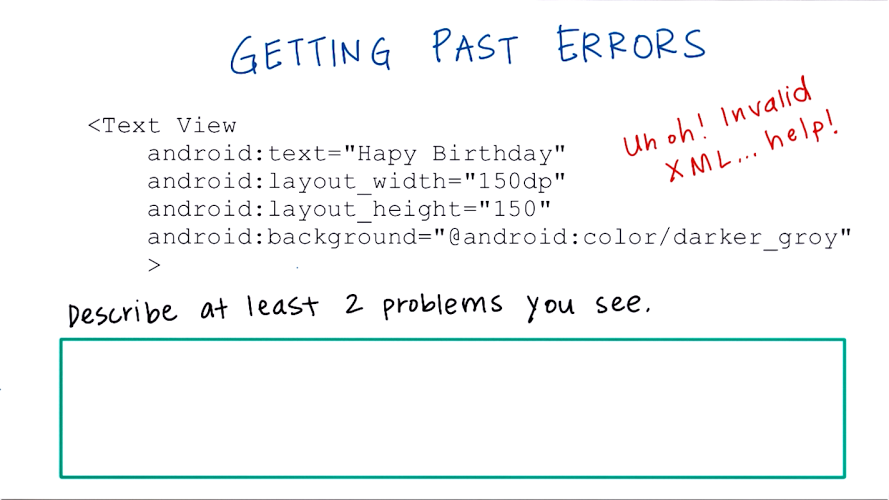 GETTING PAST ERRORS
Uh oh! Invalid
XML... help!
<Text View
android:text="Hapy Birthday"
android:layout_width="150dp"
android:layout_height="150"
android:background="@android:color/darker_groy"
>
Describe at least 2 problems you see.